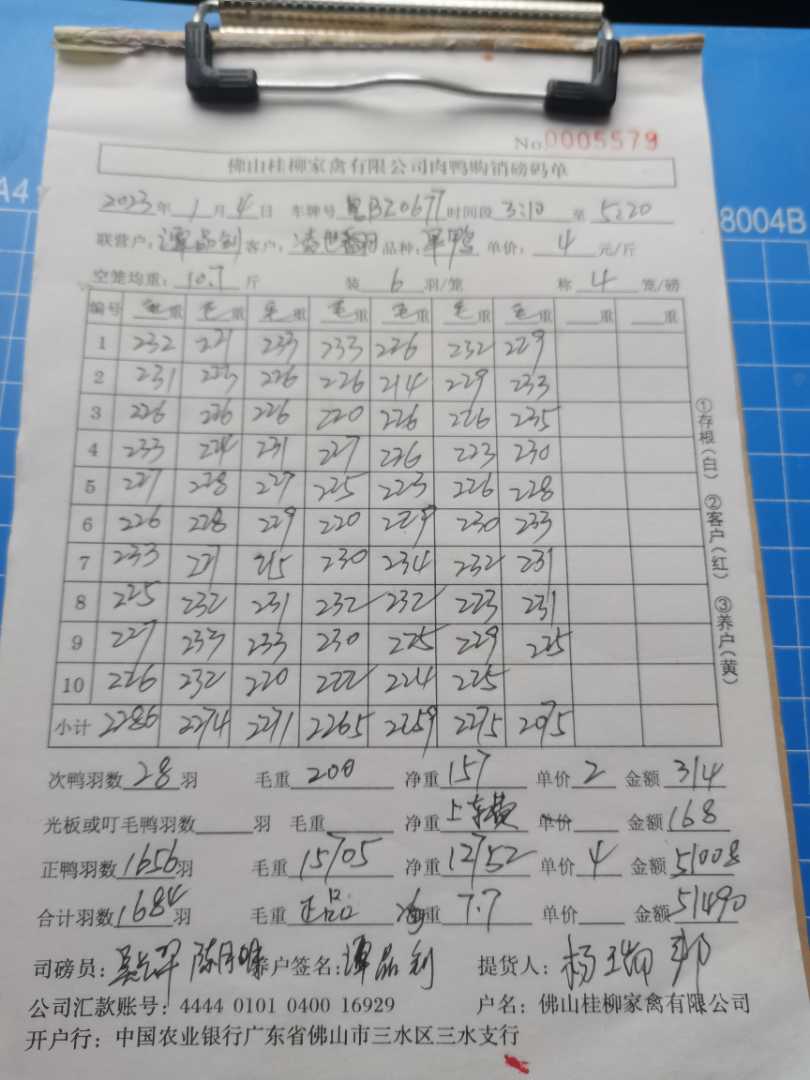 No.0005579
佛山桂柳家禽有限公司肉鸭购销磅码单
2023年 1月 4日 车牌号 BZ0677 时间段 3:10 至 5:20
联营户: 谭品剑 客户: 品种: 单价: 4 元/斤
空笼均重: 10.7 斤 装 6 羽/笼 称 4 笼/磅
编号 毛重 毛重 毛重 毛重 毛重 毛重 毛重 重 重
1 232 221 233 233 226 232 229
2 231 223 226 226 214 229 233
3 226 226 226 220 226 226 235
4 233 224 231 227 226 223 230
5 227 228 227 225 223 226 228
6 226 228 229 220 229 230 233
7 233 227 215 230 234 232 231
8 225 232 231 232 232 223 231
9 227 233 233 230 225 229 225
10 226 232 220 222 224 225
小计 2286 2274 2271 2265 2259 2275 2075
①存根(白) ②客户(红) ③养户(黄)
次鸭羽数 28 羽 毛重 200 净重 157 单价 2 金额 314
光板或叮毛鸭羽数 羽 毛重 净重 上车费 单价 金额 168
正鸭羽数 1656 羽 毛重 15705 净重 12752 单价 4 金额 51008
合计羽数 1684 羽 毛重 正品 重 7.7 单价 金额 51490
司磅员: 养户签名: 谭品剑 提货人: 杨
公司汇款账号: 4444 0101 0400 16929 户名: 佛山桂柳家禽有限公司
开户行: 中国农业银行广东省佛山市三水区三水支行
A4
8004B